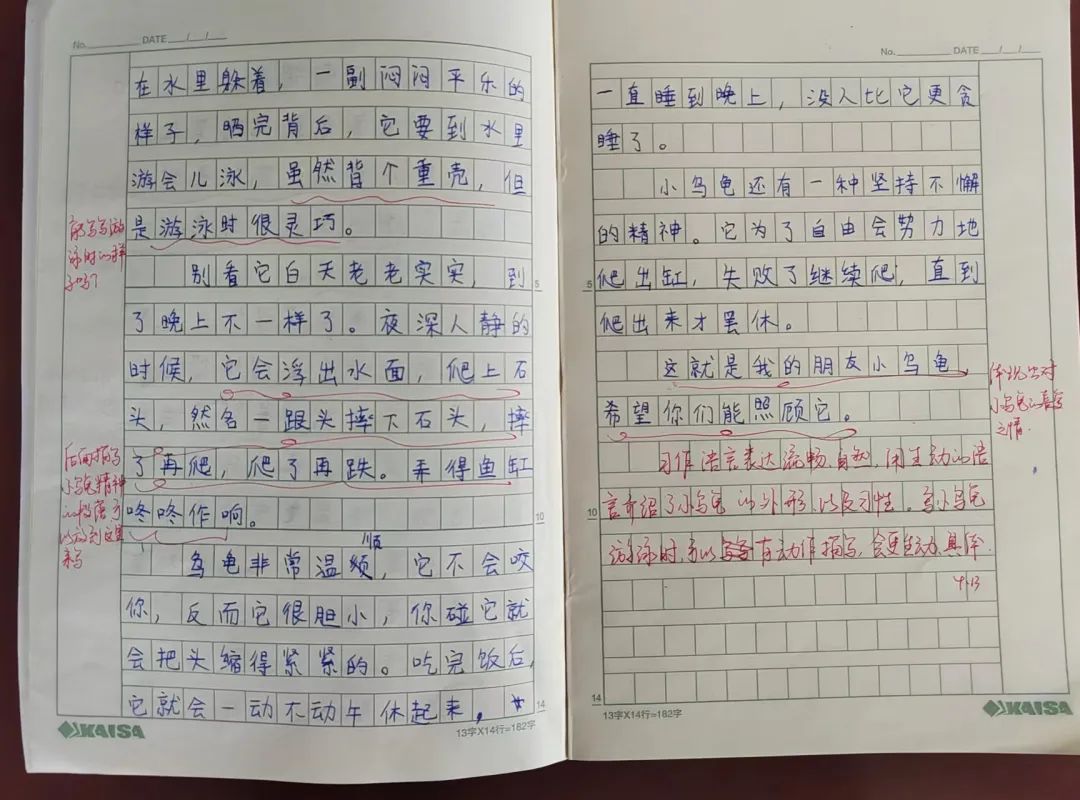 No. DATE / /
在水里躲着，一副闷闷平乐的
样子，晒完背后，它要到水里
游会儿泳，虽然背个重壳，但
是游泳时很灵巧。
能写写游
泳时的样
子吗?
别看它白天老老实实，到
了晚上不一样了。夜深人静的
时候，它会浮出水面，爬上石
头，然名一跟头摔下石头，摔
了再爬，爬了再跌。弄得鱼缸
咚咚作响。
后面描写
小乌龟精神
的段落可
以放到这里
来写
顺
乌龟非常温顺，它不会咬
你，反而它很胆小，你碰它就
会把头缩得紧紧的。吃完饭后，
它就会一动不动午休起来，
5
10
14
KAISA
13字X14行=182字
No. DATE / /
一直睡到晚上，没人比它更贪
睡了。
小乌龟还有一种坚持不懈
的精神。它为了自由会努力地
爬出缸，失败了继续爬，直到
爬出来才罢休。
这就是我的朋友小乌龟，
希望你们能照顾它。
体现出对
小乌龟的喜爱
之情.
习作语言表达流畅、自然，用生动的语
言介绍了小乌龟的外形以及习性。写小乌龟
游泳时，可以有动作描写，会更生动、具体.
4.13
5
10
14
13字X14行=182字
KAISA